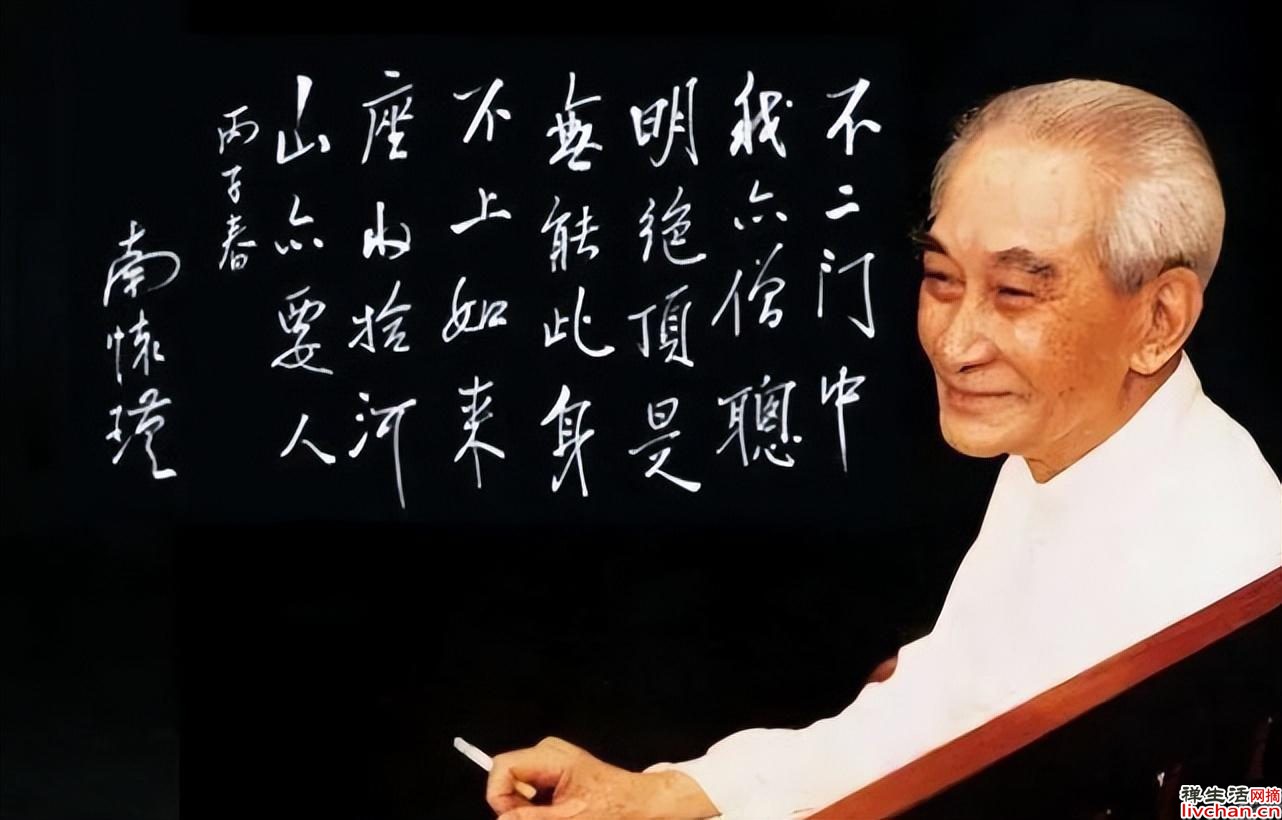 不二门中
我亦僧聰
明绝頂是
無能此身
不上如来
座收拾河
山亦要人
丙子春
南懷瑾
禅生活网摘
livchan.cn